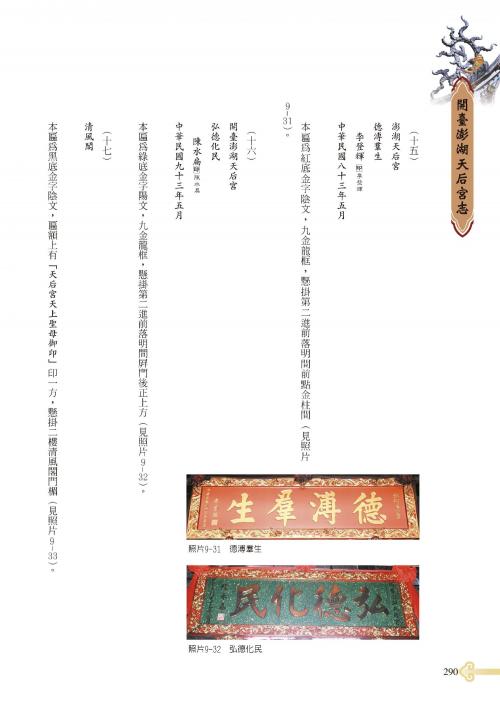 開臺澎湖天后宮志
(十五)
澎湖天后宮
德溥羣生
李登輝
中華民國八十三年五月
本匾為紅底金字陰文,九金龍框,懸掛第二進前落明間前點金柱間(見照片
9-31)。
(十六)
開臺澎湖天后宮
弘德化民
陳水扁
中華民國九十三年五月
本匾為綠底金字陽文,九金龍框,懸掛第二進前落明間屏門後正上方(見照片9-32)。
(十七)
清風閣
本匾為黑底金字陰文,匾額上有「天后宮天上聖母御印」印一方,懸掛二樓清風閣門楣(見照片9-33)。
生羣溥德
照片9-31 德溥羣生
民化德弘
照片9-32 弘德化民
290